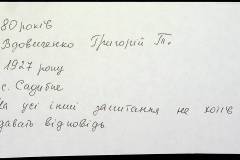 80 років
Вдовиченко Григорій Т.
1927 року
с. Садибне
На усі інші запитання не хотів
давать відповідь